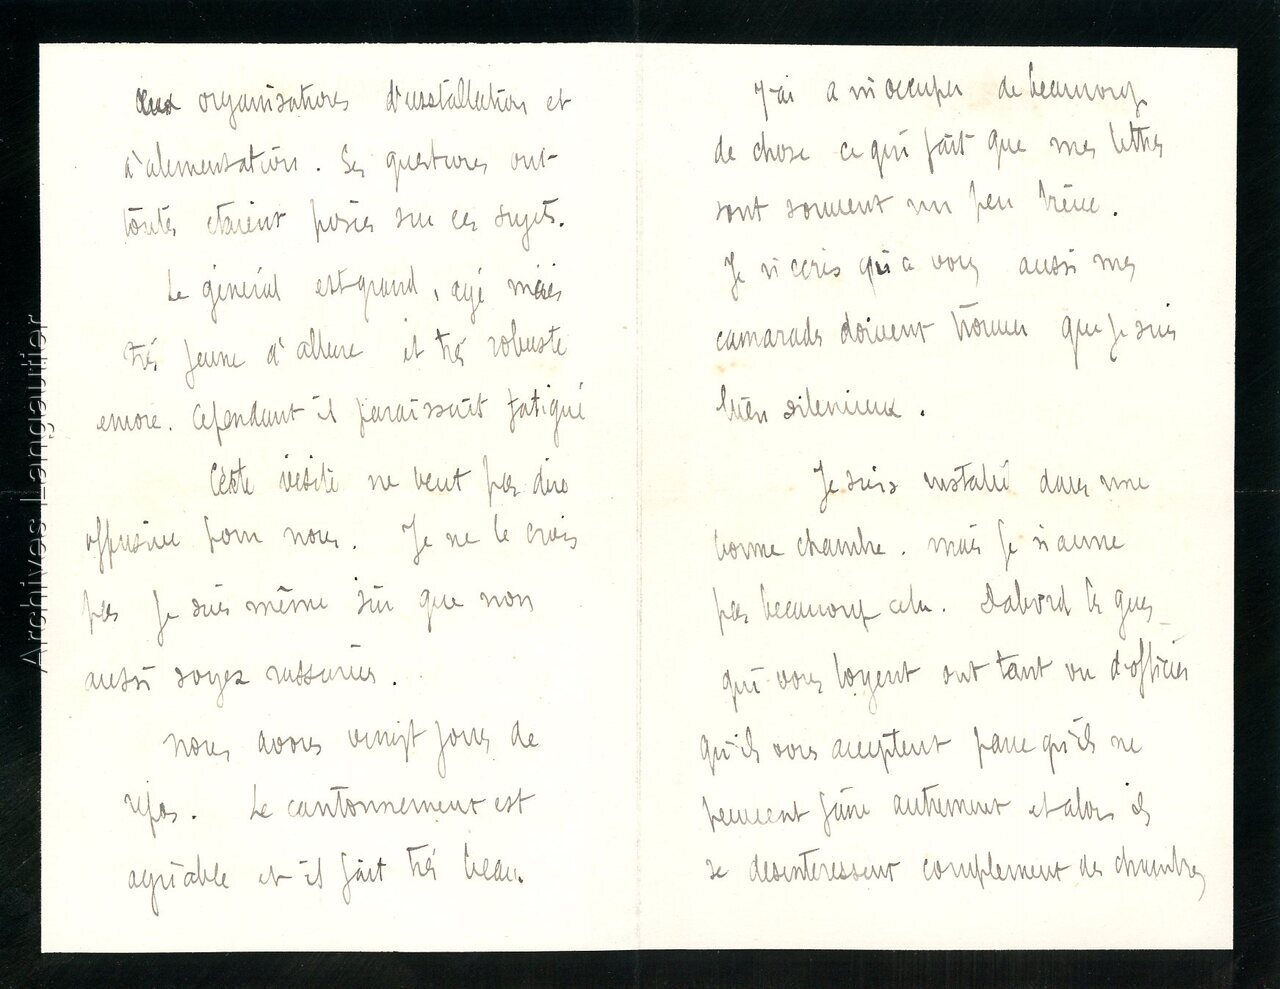 aux organisations d'installation et
d'alimentation. Ses questions ont
toutes etaient posées sur ces sujets.
Le général est grand, agé mais
trés jeune d'allure et trés robuste
encore. Cependant il paraissait fatigué
Cette visite ne veut pas dire
offensive pour nous. Je ne le crois
pas Je suis même sûr que non
aussi soyez rassurées.
Nous avons vingt jours de
repos. Le cantonnement est
agréable et il fait trés beau.
J'ai a m'occuper de beaucoup
de chose ce qui fait que mes lettres
sont souvent un peu brève.
Je n'ecris qu'a vous aussi mes
camarades doivent trouver que je suis
bien silencieux.
Je suis installé dans une
bonne chambre. mais je n'aime
pas beaucoup cela. D'abord les gens
qui vous logent ont tant vu d'officier
qu'ils vous acceptent parce qu'ils ne
peuvent faire autrement et alors ils
se desinteressent complement des chambres
Archives Langautier